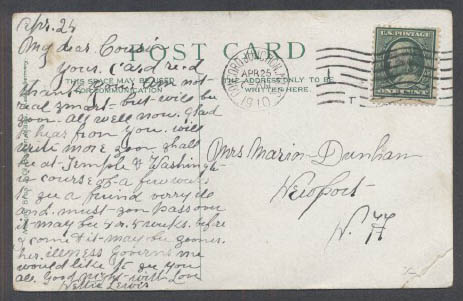 Apr. 24
My dear Cousin
POST CARD
Your Card rec.d
thanks
THIS SPACE MAY BE USED
FOR COMMUNICATION
THE ADDRESS ONLY TO BE
WRITTEN HERE.
CONCORD JUNCTION
APR 25
1910
U.S. POSTAGE
ONE CENT
am not
real smart - but will be
soon. all well now. glad
to hear from you. will
write more soon. shall
be at Temple & Washingt-
in course of a few weeks
to see a friend very ill
and must you pass over
it may be 3 or 4 weeks before
I come & it may be sooner.
her illness governs me
would like to see you
all. Good night with Love
Nellie Lewis
Mrs Marion Dunham
Newport
N. H